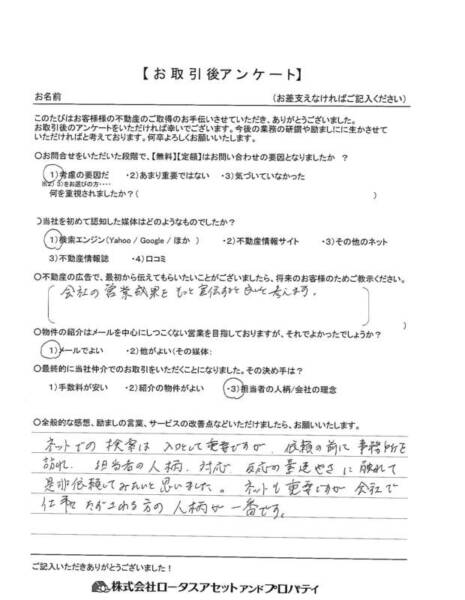 【お取引後アンケート】
お名前 (お差支えなければご記入ください)
このたびはお客様様の不動産のご取得のお手伝いさせていただき、ありがとうございました。
お取引後のアンケートをいただければ幸いでございます。今後の業務の研鑽や励ましにに生かさせて
いただければと考えております。何卒よろしくお願いいたします。
○お問合せをいただいた段階で、【無料】【定額】はお問い合わせの要因となりましたか ?
1)考慮の要因だ ・2)あまり重要ではない ・3)気づいていなかった
※2) 3)をお選びの方・・・・
何を重視されましたか?( )
○当社を初めて認知した媒体はどのようなものでしたか?
1)検索エンジン(Yahoo / Google / ほか ) ・2)不動産情報サイト ・3)その他のネット
3)不動産情報誌 ・4)口コミ
○不動産の広告で、最初から伝えてもらいたいことがございましたら、将来のお客様のためご教示ください。
会社の営業成果をもっと宣伝すると良いと考えます。
○物件の紹介はメールを中心にしつこくない営業を目指しておりますが、それでよかったでしょうか?
1)メールでよい ・2)他がよい(その媒体:
○最終的に当社仲介でのお取引をいただくことになりました。その決め手は?
1)手数料が安い ・2)紹介の物件がよい ・3)担当者の人柄/会社の理念
○全般的な感想、励ましの言葉、サービスの改善点などいただけましたら、お願いいたします。
ネットでの検索は入口として重要ですが、依頼の前に事務所を
訪れ、担当者の人柄、対応、反応の素速やさに触れて
是非依頼してみたいと思いました。ネットも重要ですが会社で
仕事をたずさわる方の人柄が一番です。
ご記入いただきありがとうございました!
株式会社ロータスアセットアンドプロパティ